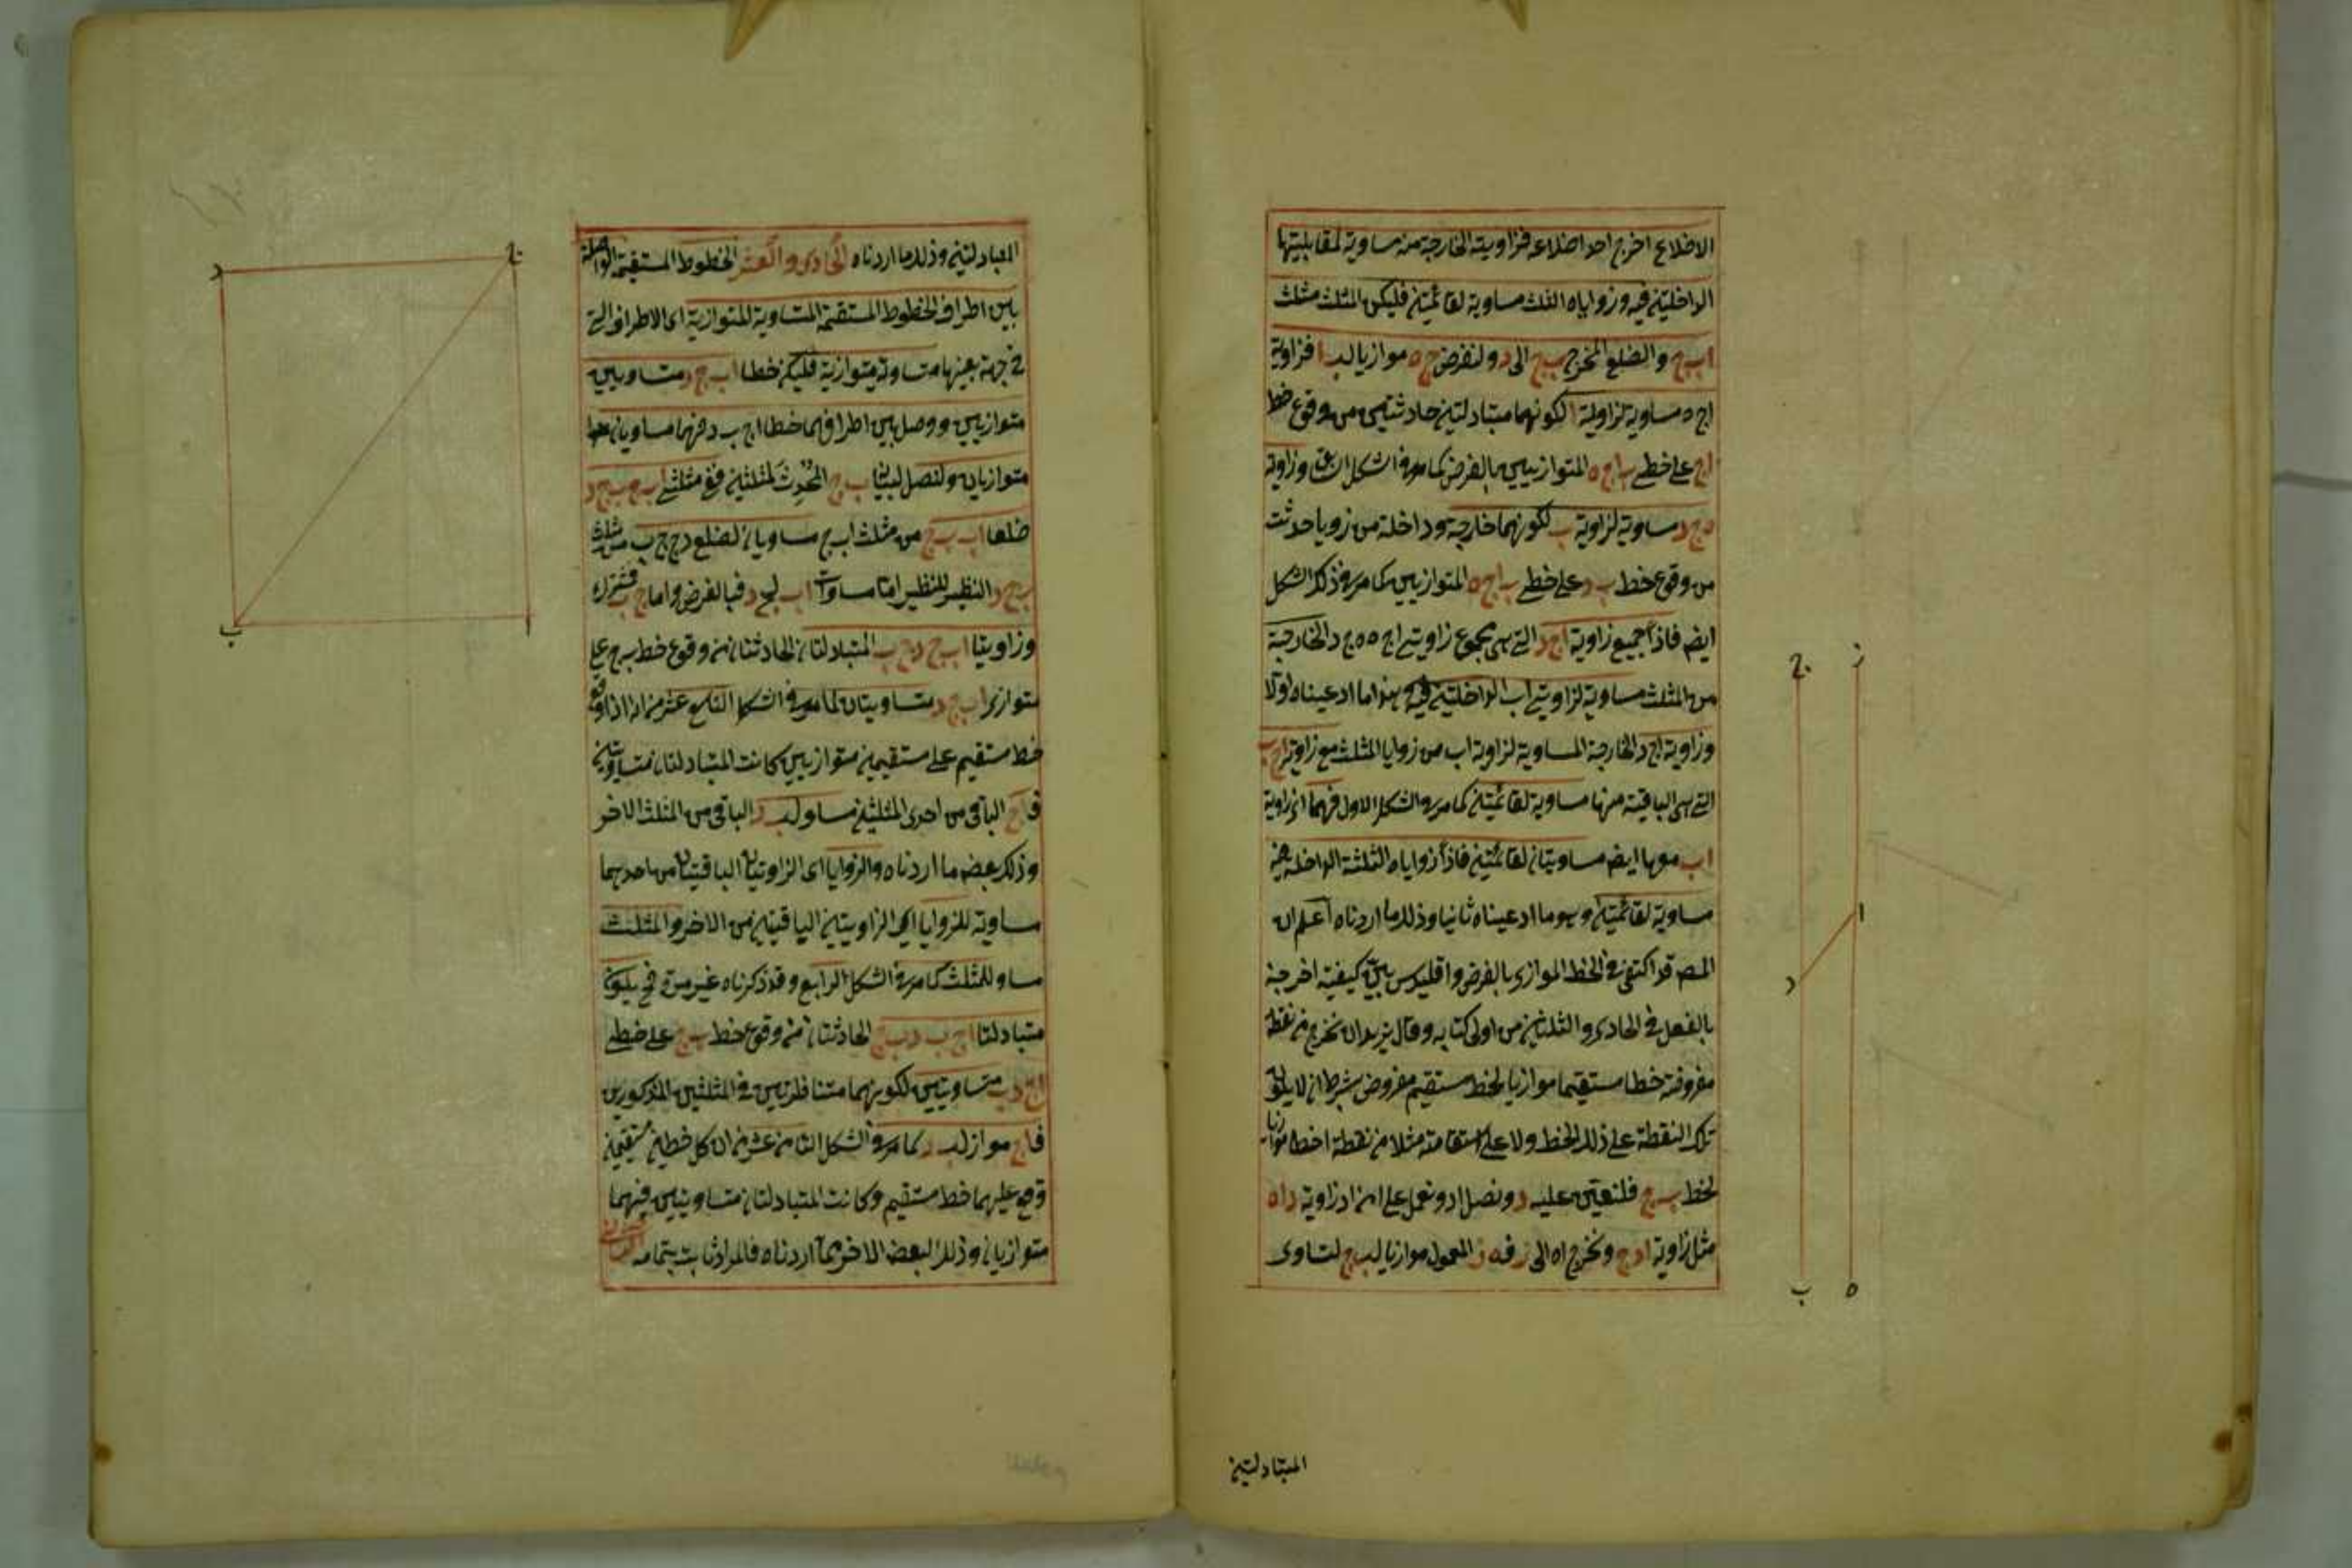 الاضلاع اخرج احد اضلاعه فزاويته الخارجة منه مساوية لمقابليتها
الداخليتين فيه وزواياه الثلث مساوية لقائمتين فليكن المثلث مثلث
ا ب ج والضلع المخرج ب ج الى د ولنفرض ج ه موازيا لب ا فزاوية
ا ج ه مساوية لزاوية ا لكونهما متبادلتين حادثتين من وقوع خط
ا ج على خطى ب ا ج ه المتوازيين بالفرض كما مر فى الشكل وزاوية
ه ج د مساوية لزاوية ب لكونهما خارجة وداخلة من زوايا حدثت
من وقوع خط ب د على خطى ب ا ج ه المتوازيين كما مر فى ذلك الشكل
ايضا فاذا جميع زاوية ا ج د التى هى مجموع زاويتى ا ج ه ه ج د الخارجة
من المثلث مساوية لزاويتى ا ب الداخليتين فيه وهذا ما ادعيناه اولا
وزاوية ا ج د الخارجة المساوية لزاوية ا ب من زوايا المثلث مع زاوية ا ج ب
التى هى الباقية منها مساوية لقائمتين كما مر فى الشكل الاول فهما اى زاوية
ا ب معها ايضا مساويتان لقائمتين فاذا زواياه الثلثة الداخلة
مساوية لقائمتين وهو ما ادعيناه ثانيا وذلك ما اردناه اعلم ان
المصـ قد اكتفى فى الخط الموازى بالفرض واقليدس بين كيفية اخرجه
بالفعل فى الحادى والثلثين من اولى كتابه وقال نريد ان نخرج من نقطة
مفروضة خطا مستقيما موازيا لخط مستقيم مفروض بشرط ان لا يكون
تلك النقطة على ذلك الخط ولا على استقامته مثلا من نقطة ا خطا موازيا
لخط ب ج فلنعين عليه د ونصل ا د ونعمل على ا من ا د زاوية د ا ه
مثل زاوية ا د ج ونخرج ا ه الى ز فه ز المعمول موازيا لب ج لتساوى
المتبادلتين
ز
ج
ا
د
ب
ه
المتبادلتين وذلك ما اردناه الحادى والعشر الخطوط المستقيمة الواصلة
بين اطراف الخطوط المستقيمة المتساوية المتوازية اى الاطراف التى
فى جهة بعينها متساوية متوازية فليكن خطا ا ب ج د متساويين
متوازيين ووصل بين اطرافهما خطا ا ج ب د فهما متساويان
متوازيان ولنصل ب ج المحدث لمثلثين ففى مثلثى ا ب ج ب ج د
ضلعا ا ب ب ج من مثلث ا ب ج مساويان لضلعى د ج ج ب من مثلث
ب ج د النظير للنظير اما مساواة ا ب لج د فبالفرض واما ج ب فمشترك
وزاويتا ا ب ج د ج ب المتبادلتان الحادثتان من وقوع خط ب ج على
متوازى ا ب ج د متساويتان لما مر فى الشكل التاسع عشر من انه اذا وقع
خط مستقيم على مستقيمين متوازيين كانت المتبادلتان متساويتين
فا ج الباقى من احدى المثلثين مساو لب د الباقى من المثلث الاخر
وذلك بعض ما اردناه والزوايا اى الزاويتان الباقيتان من احدهما
مساوية للزوايا اى الزاويتين الباقيتين من الاخر والمثلث
مساو للمثلث كما مر فى الشكل الرابع وقد ذكرناه غير مرة فح يكون
متبادلتا ا ج ب د ب ج الحادثتان من وقوع خط ب ج على خطى
ا ج د ب متساويتين لكونهما متناظرتين فى المثلثين المذكورين
فا ج مواز لب د كما مر فى الشكل الثامن عشر من ان كل خطين مستقيمين
وقع عليهما خط مستقيم وكانت المتبادلتان متساويتين فهما
متوازيان وذلك البعض الاخر مما اردناه فالمراد ثابت بتمامه
د
ج
ب
ا